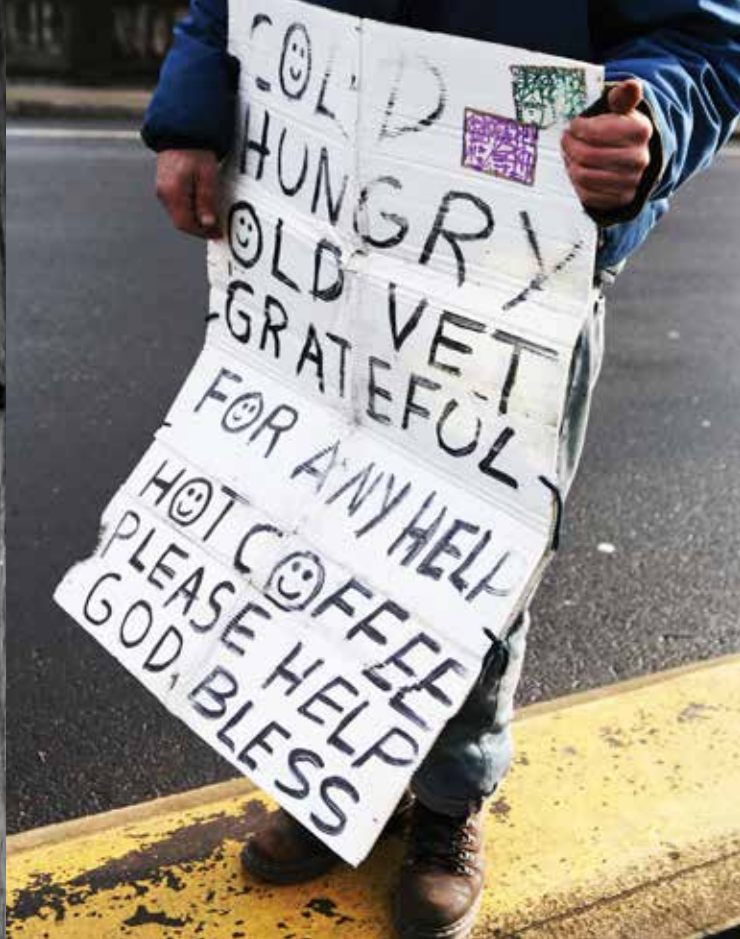 COLD
HUNGRY
OLD VET
GRATEFUL
FOR ANY HELP
HOT COFFEE
PLEASE HELP
GOD BLESS